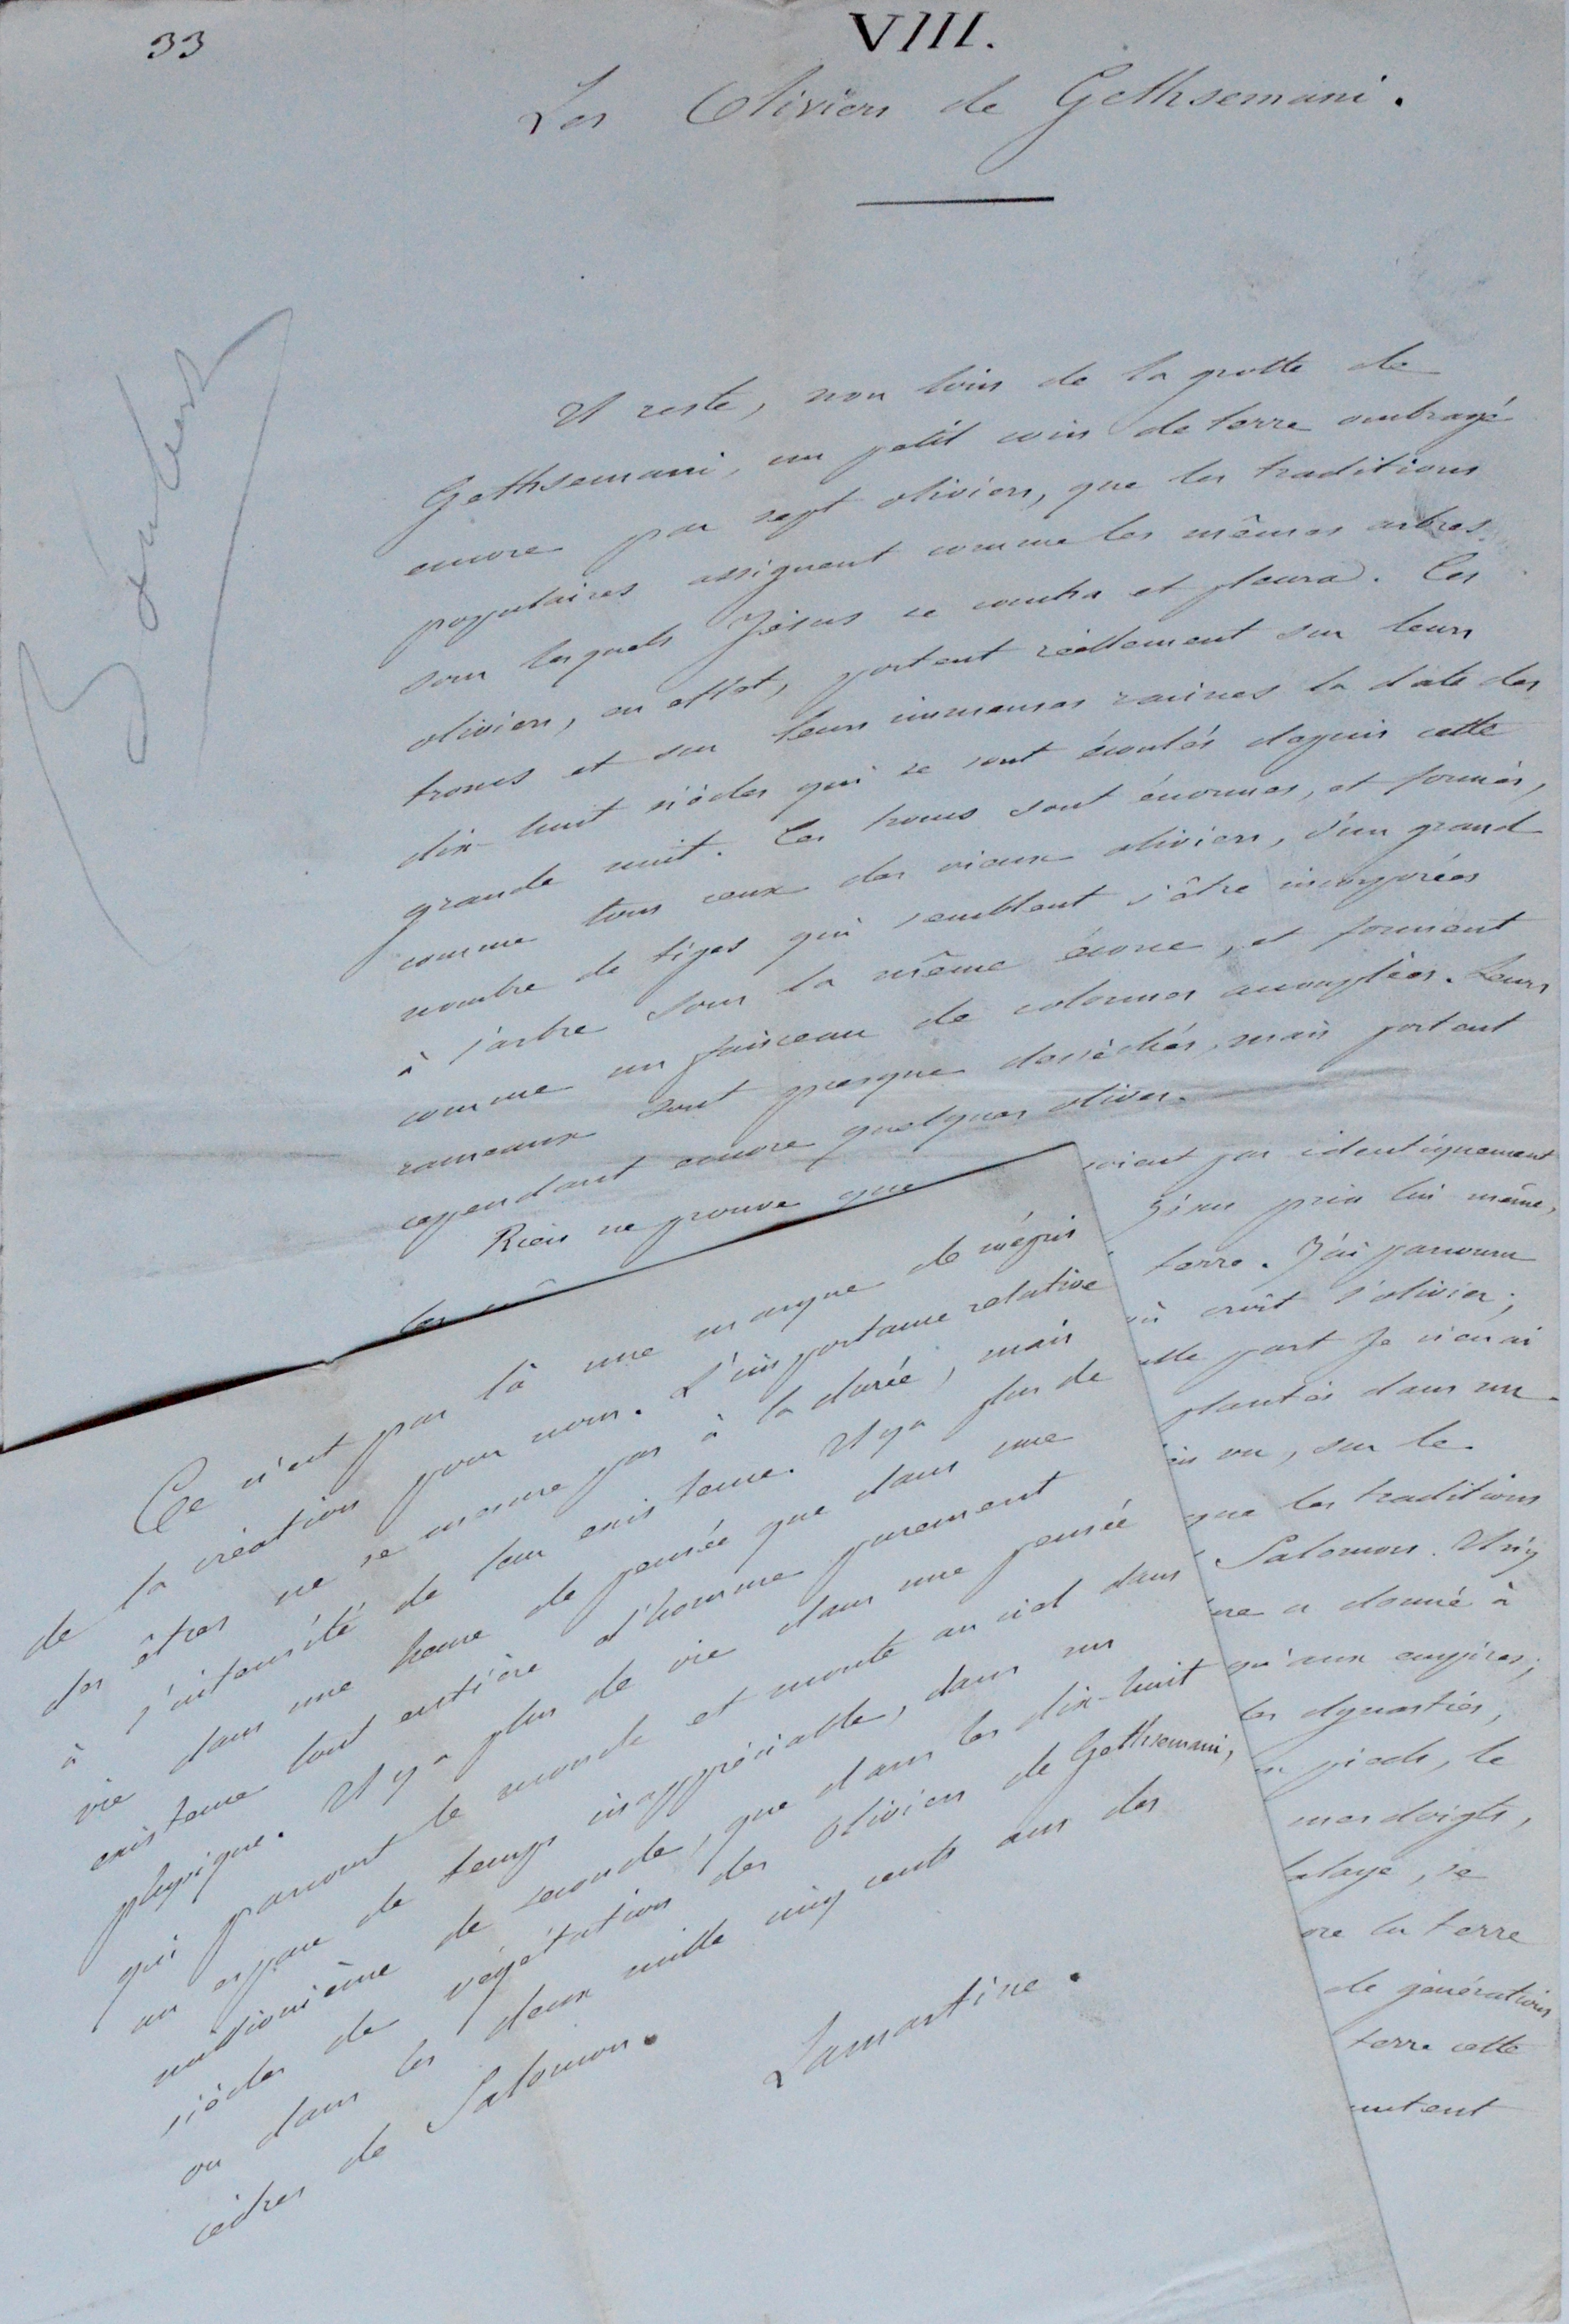 33
VIII.
Les Oliviers de Gethsemani.
Il reste, non loin de la grotte de
Gethsemani, un petit coin de terre ombragé
encore par sept oliviers, que les traditions
populaires assignent comme les mêmes arbres
sous lesquels Jésus se coucha et pleura. Ces
oliviers, en effet, portent réellement sur leurs
troncs et sur leurs immenses racines la date des
dix-huit siècles qui se sont écoulés depuis cette
grande nuit. Ces troncs sont énormes, et formés,
comme tous ceux des vieux oliviers, d'un grand
nombre de tiges qui semblent s'être incorporées
à l'arbre sous la même écorce, et forment
comme un faisceau de colonnes accouplées. Leurs
rameaux sont presque desséchés, mais portent
cependant encore quelques olives.
Rien ne prouve que
soient pas identiquement
les
terre. J'ai parcouru
où croît l'olivier;
part je n'en ai
plantés dans un
vu, sur le
que les traditions
Salomon. Il n'y
a donné à
qu'aux empires;
les dynasties,
pieds, le
mes doigts,
se
la terre
de générations
terre cette
Ce n'est pas là une marque de mépris
de la création pour nous. L'importance relative
des êtres ne se mesure pas à la durée, mais
à l'intensité de leur existence. Il y a plus de
vie dans une heure de pensée que dans une
existence tout entière d'homme purement
physique. Il y a plus de vie dans une pensée
qui parcourt le monde et monte au ciel dans
un espace de temps inappréciable, dans un
millionième de seconde, que dans les dix-huit
siècles de végétation des oliviers de Gethsemani,
ou dans les deux mille cinq cents ans des
cèdres de Salomon.
Lamartine.